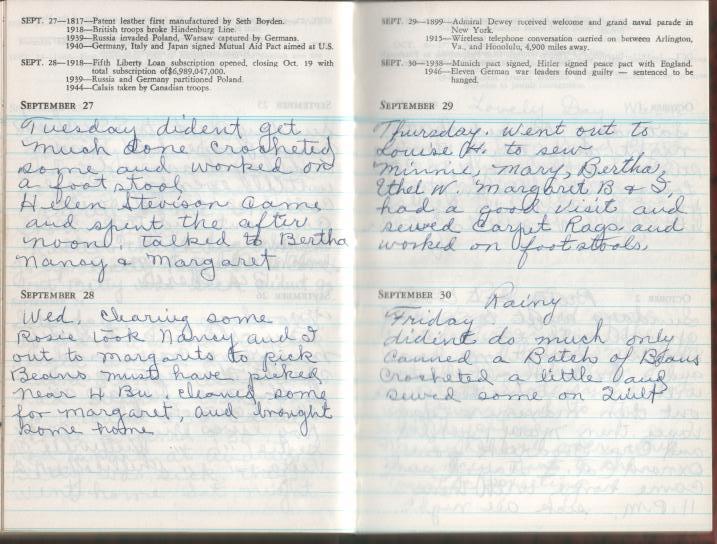 SEPT. 27—1817—Patent leather first manufactured by Seth Boyden.
1918—British troops broke Hindenburg Line.
1939—Russia invaded Poland, Warsaw captured by Germans.
1940—Germany, Italy and Japan signed Mutual Aid Pact aimed at U.S.
SEPT. 28—1918—Fifth Liberty Loan subscription opened, closing Oct. 19 with
total subscription of $6,989,047,000.
1939—Russia and Germany partitioned Poland.
1944—Calais taken by Canadian troops.
SEPTEMBER 27
Tuesday dident get
much done crocheted
some and worked on
a foot stool
Helen Stevison came
and spent the after
noon. talked to Bertha
Nancy & Margaret
SEPTEMBER 28
Wed. clearing some
Rosie took Nancy and I
out to margarits to pick
Beans must have picked
near 4 Bu. cleaned some
for margaret, and brought
some home
SEPT. 29—1899—Admiral Dewey received welcome and grand naval parade in
New York.
1915—Wireless telephone conversation carried on between Arlington,
Va., and Honolulu, 4,900 miles away.
SEPT. 30—1938—Munich pact signed, Hitler signed peace pact with England.
1946—Eleven German war leaders found guilty — sentenced to be
hanged.
SEPTEMBER 29
Thursday. Went out to
Louise H. to sew
minnie, mary, Bertha,
Ethel W. Margaret B & I,
had a good visit and
sewed Carpet Rags and
worked on footstools,
SEPTEMBER 30 Rainy
Friday
didint do much only
canned a Batch of Beans
crocheted a little and
sewed some on Quilt